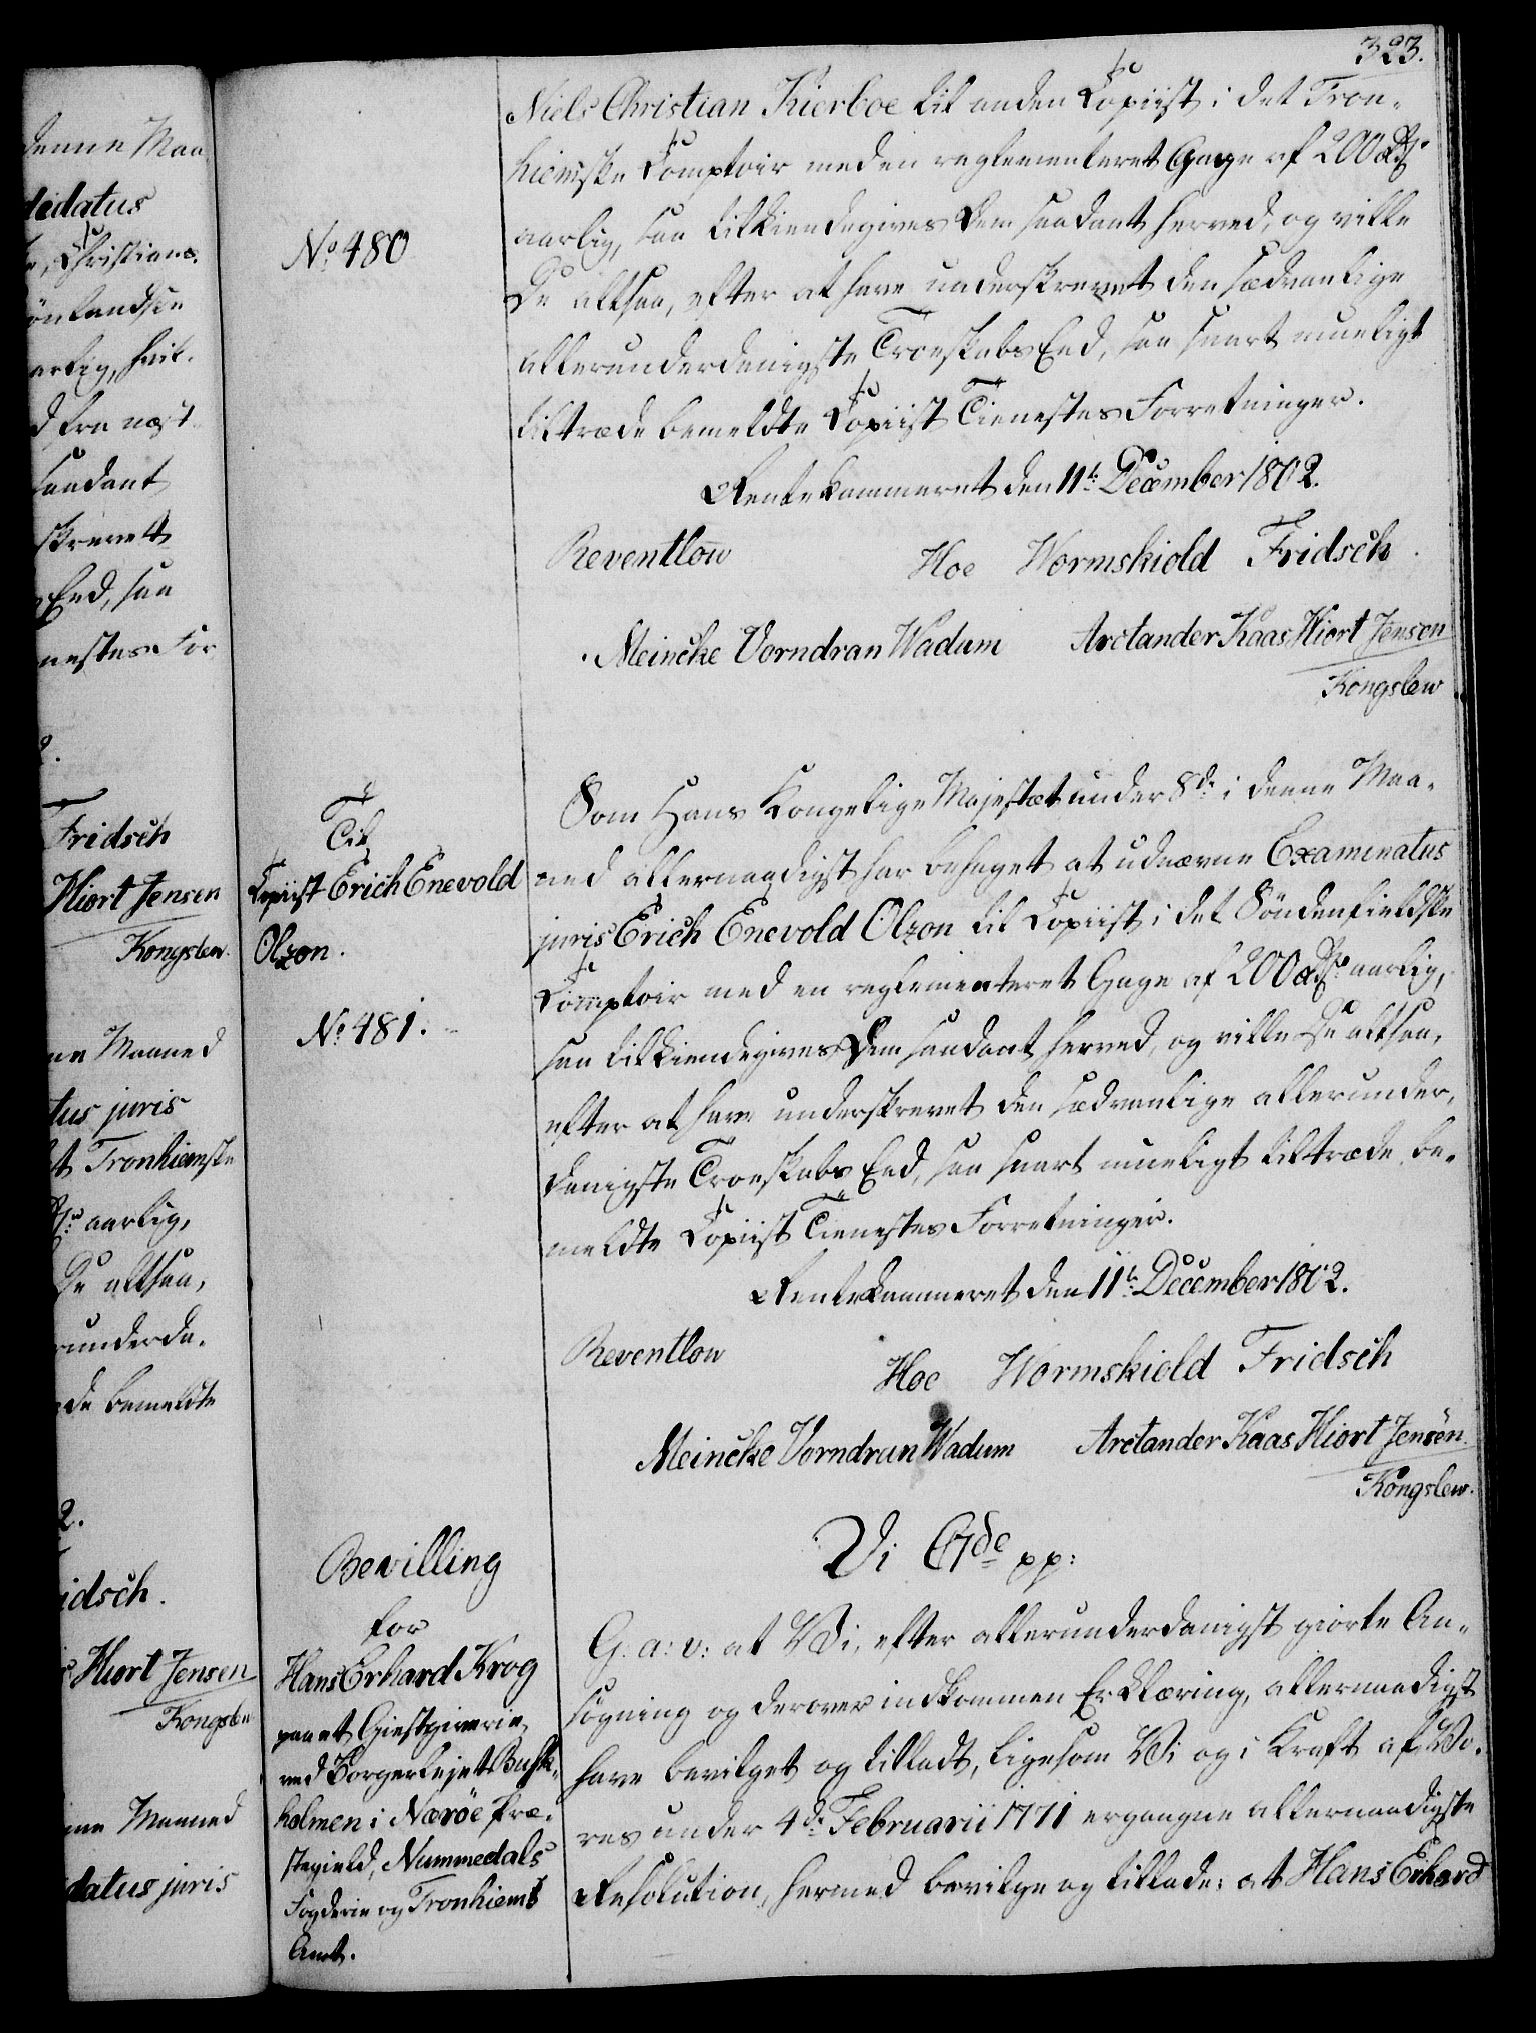 323.
Niels Christian Kierboe til anden Copiist i det Tron-
hiemske Comptoir med en reglementeret Gage af 200 Rd
aarlig, saa tilkiendegives Dem saadant herved, og ville
De altsaa, efter at have underskrevet den sædvanlige
allerunderdanigste Troeskabs Eed, saa snart mueligt
tiltræde bemeldte Copiist Tienestes Forretninger.
Rentekammeret den 11te December 1802.
Reventlow Hoe Wormskiold Fridsch
Meincke Vorndran Wadum Arctander Kaas Hiort Jensen
Kongslew
No. 480
Til
Copiist Erich Enevold
Olzon.
No. 481.
Som Hans Kongelige Majestæt under 8de i denne Maa-
ned allernaadigst har behaget at udnævne Examinatus
juris Erich Enevold Olzon til Copiist i det Söndenfieldske
Comptoir med en reglementeret Gage af 200 Rd aarlig,
saa tilkiendegives Dem saadant herved, og ville De altsaa,
efter at have underskrevet den sædvanlige allerunder-
danigste Troeskabs Eed, saa snart mueligt tiltræde be-
meldte Copiist Tienestes Forretninger.
Rentekammeret den 11te December 1802.
Reventlow Hoe Wormskiold Fridsch
Meincke Vorndran Wadum Arctander Kaas Hiort Jensen
Kongslew.
Bevilling
for
Hans Erhard Krog
paa et Giestgiverie
ved Borgerlejet
holmen i Næröe Præ-
stegield, Nummedals
Fogderie og Tronhiems
Amt.
Vi C7de pp:
G. a: v: at Vi, efter allerunderdanigst giorte An-
søgning og derover indkommen Erklæring, allernaadigst
have bevilget og tilladt, ligesom Vi og i Kraft af Vo-
res under 4de Februarii 1771 ergangne allernaadigste
Resolution, hermed bevilge og tillade: at Hans Erhard